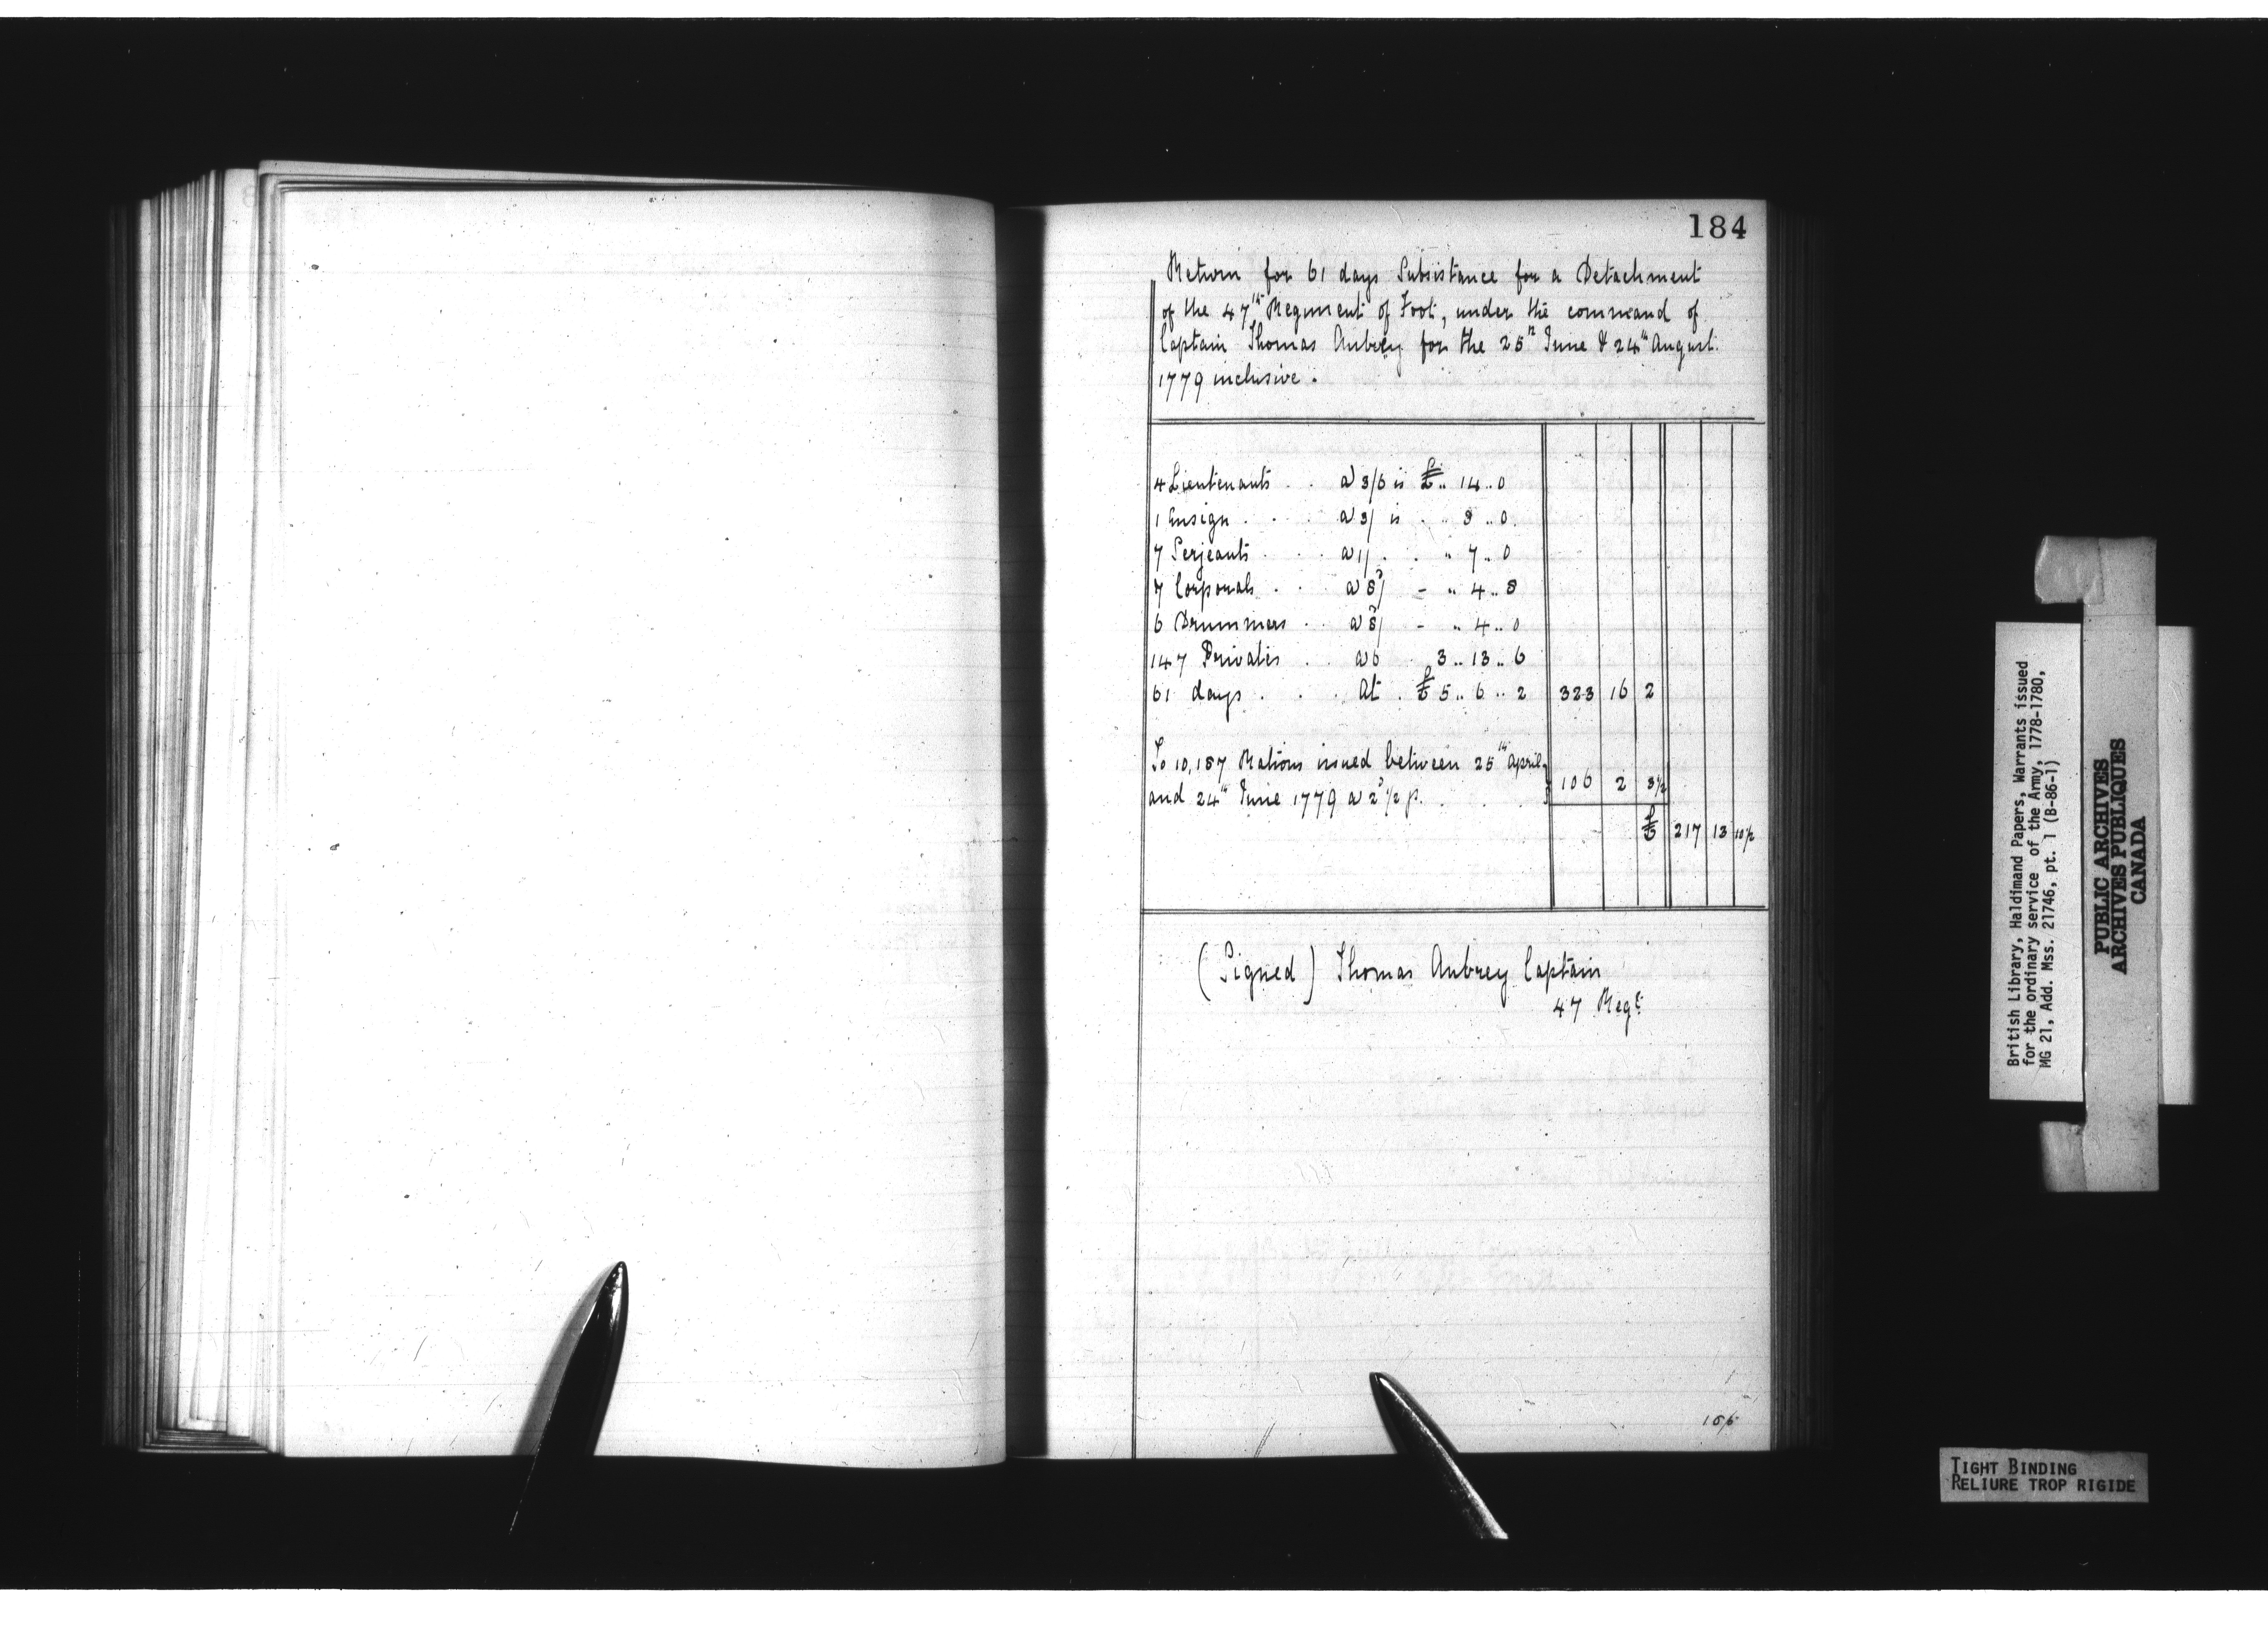 184
Return for 61 days Subsistance for a Detachment
of the 47th Regiment of Foot, under the command of
Captain Thomas Aubrey for the 25th June & 24th August
1779 inclusive.
4 Lieutenants . . a 3/6 is £ „ 14 „ 0
1 Ensign . . . a 3/ is . „ 3 „ 0
7 Serjeants . . a 1/ . . „ 7 „ 0
7 Corporals . . a 8d/ - „ 4 „ 8
6 Drummers . . a 8d/ - „ 4 „ 0
147 Privates . . a 6 . 3 „ 13 „ 6
61 days . . . At . £ 5 „ 6 „ 2 323 16 2
To 10,187 Rations issued between 25th April
and 24th June 1779 a 2d 1/2 p. . . . 106 2 3 1/2
£ 217 13 10 1/2
(Signed) Thomas Aubrey Captain
47 Regt
British Library, Haldimand Papers, Warrants issued
for the ordinary service of the Army, 1778-1780,
MG 21, Add. Mss. 21746, pt. 1 (B-86-1)
PUBLIC ARCHIVES
ARCHIVES PUBLIQUES
CANADA
TIGHT BINDING
RELIURE TROP RIGIDE